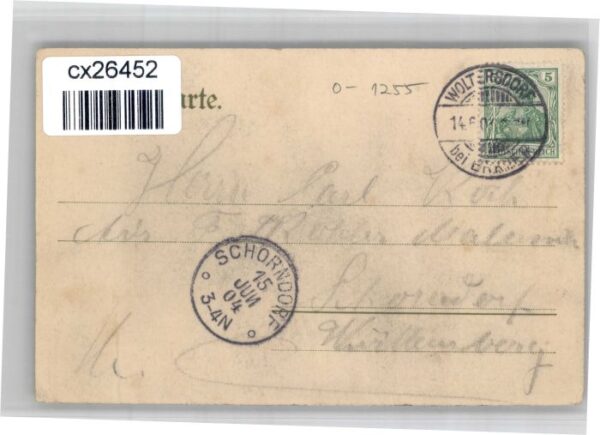 cx26452
arte.
0-1255
5
WOLTERSDORF
14.6.04
bei ERKNER
Herrn Carl Koch
SCHORNDORF
15
JUN
04
3-4N
Schorndorf
Württemberg